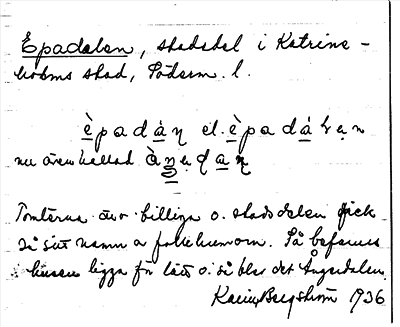 Epadalen, stadsdel i Katrine-
holms stad, Söderm. l.
èpadáṇ el. èpadálẹn
nu även kallad àŋẹḍaṇ
Tomterna äro billiga o. stadsdelen fick
så sitt namn av folkhumorn. På
husen ligga för lätt o. så blev det Ångerdalen.
Karin Bergström 1936